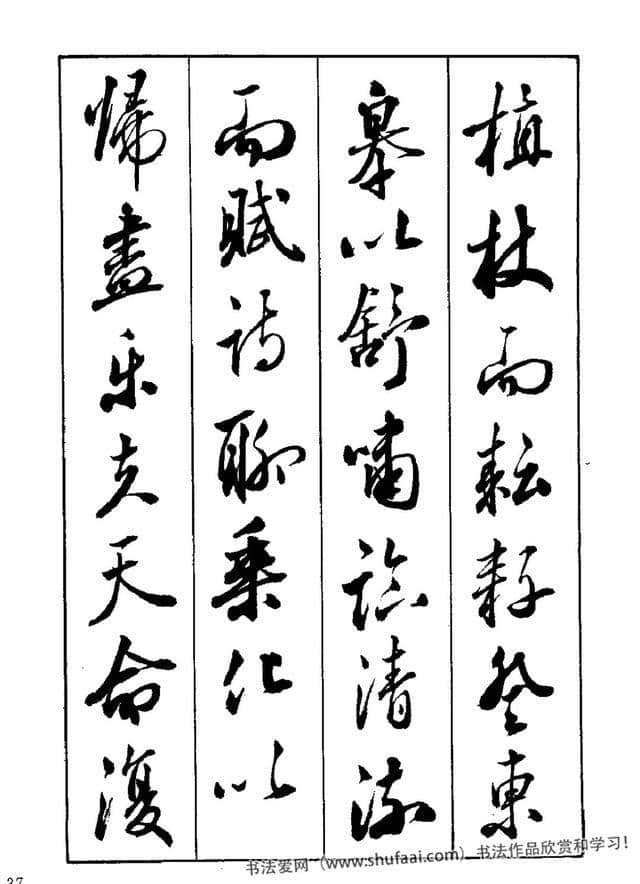 植杖而耘耔登東
皋以舒嘯臨清流
而賦詩聊乘化以
歸盡樂夫天命復
书法爱网（www.shufaai.com）书法作品欣赏和学习！